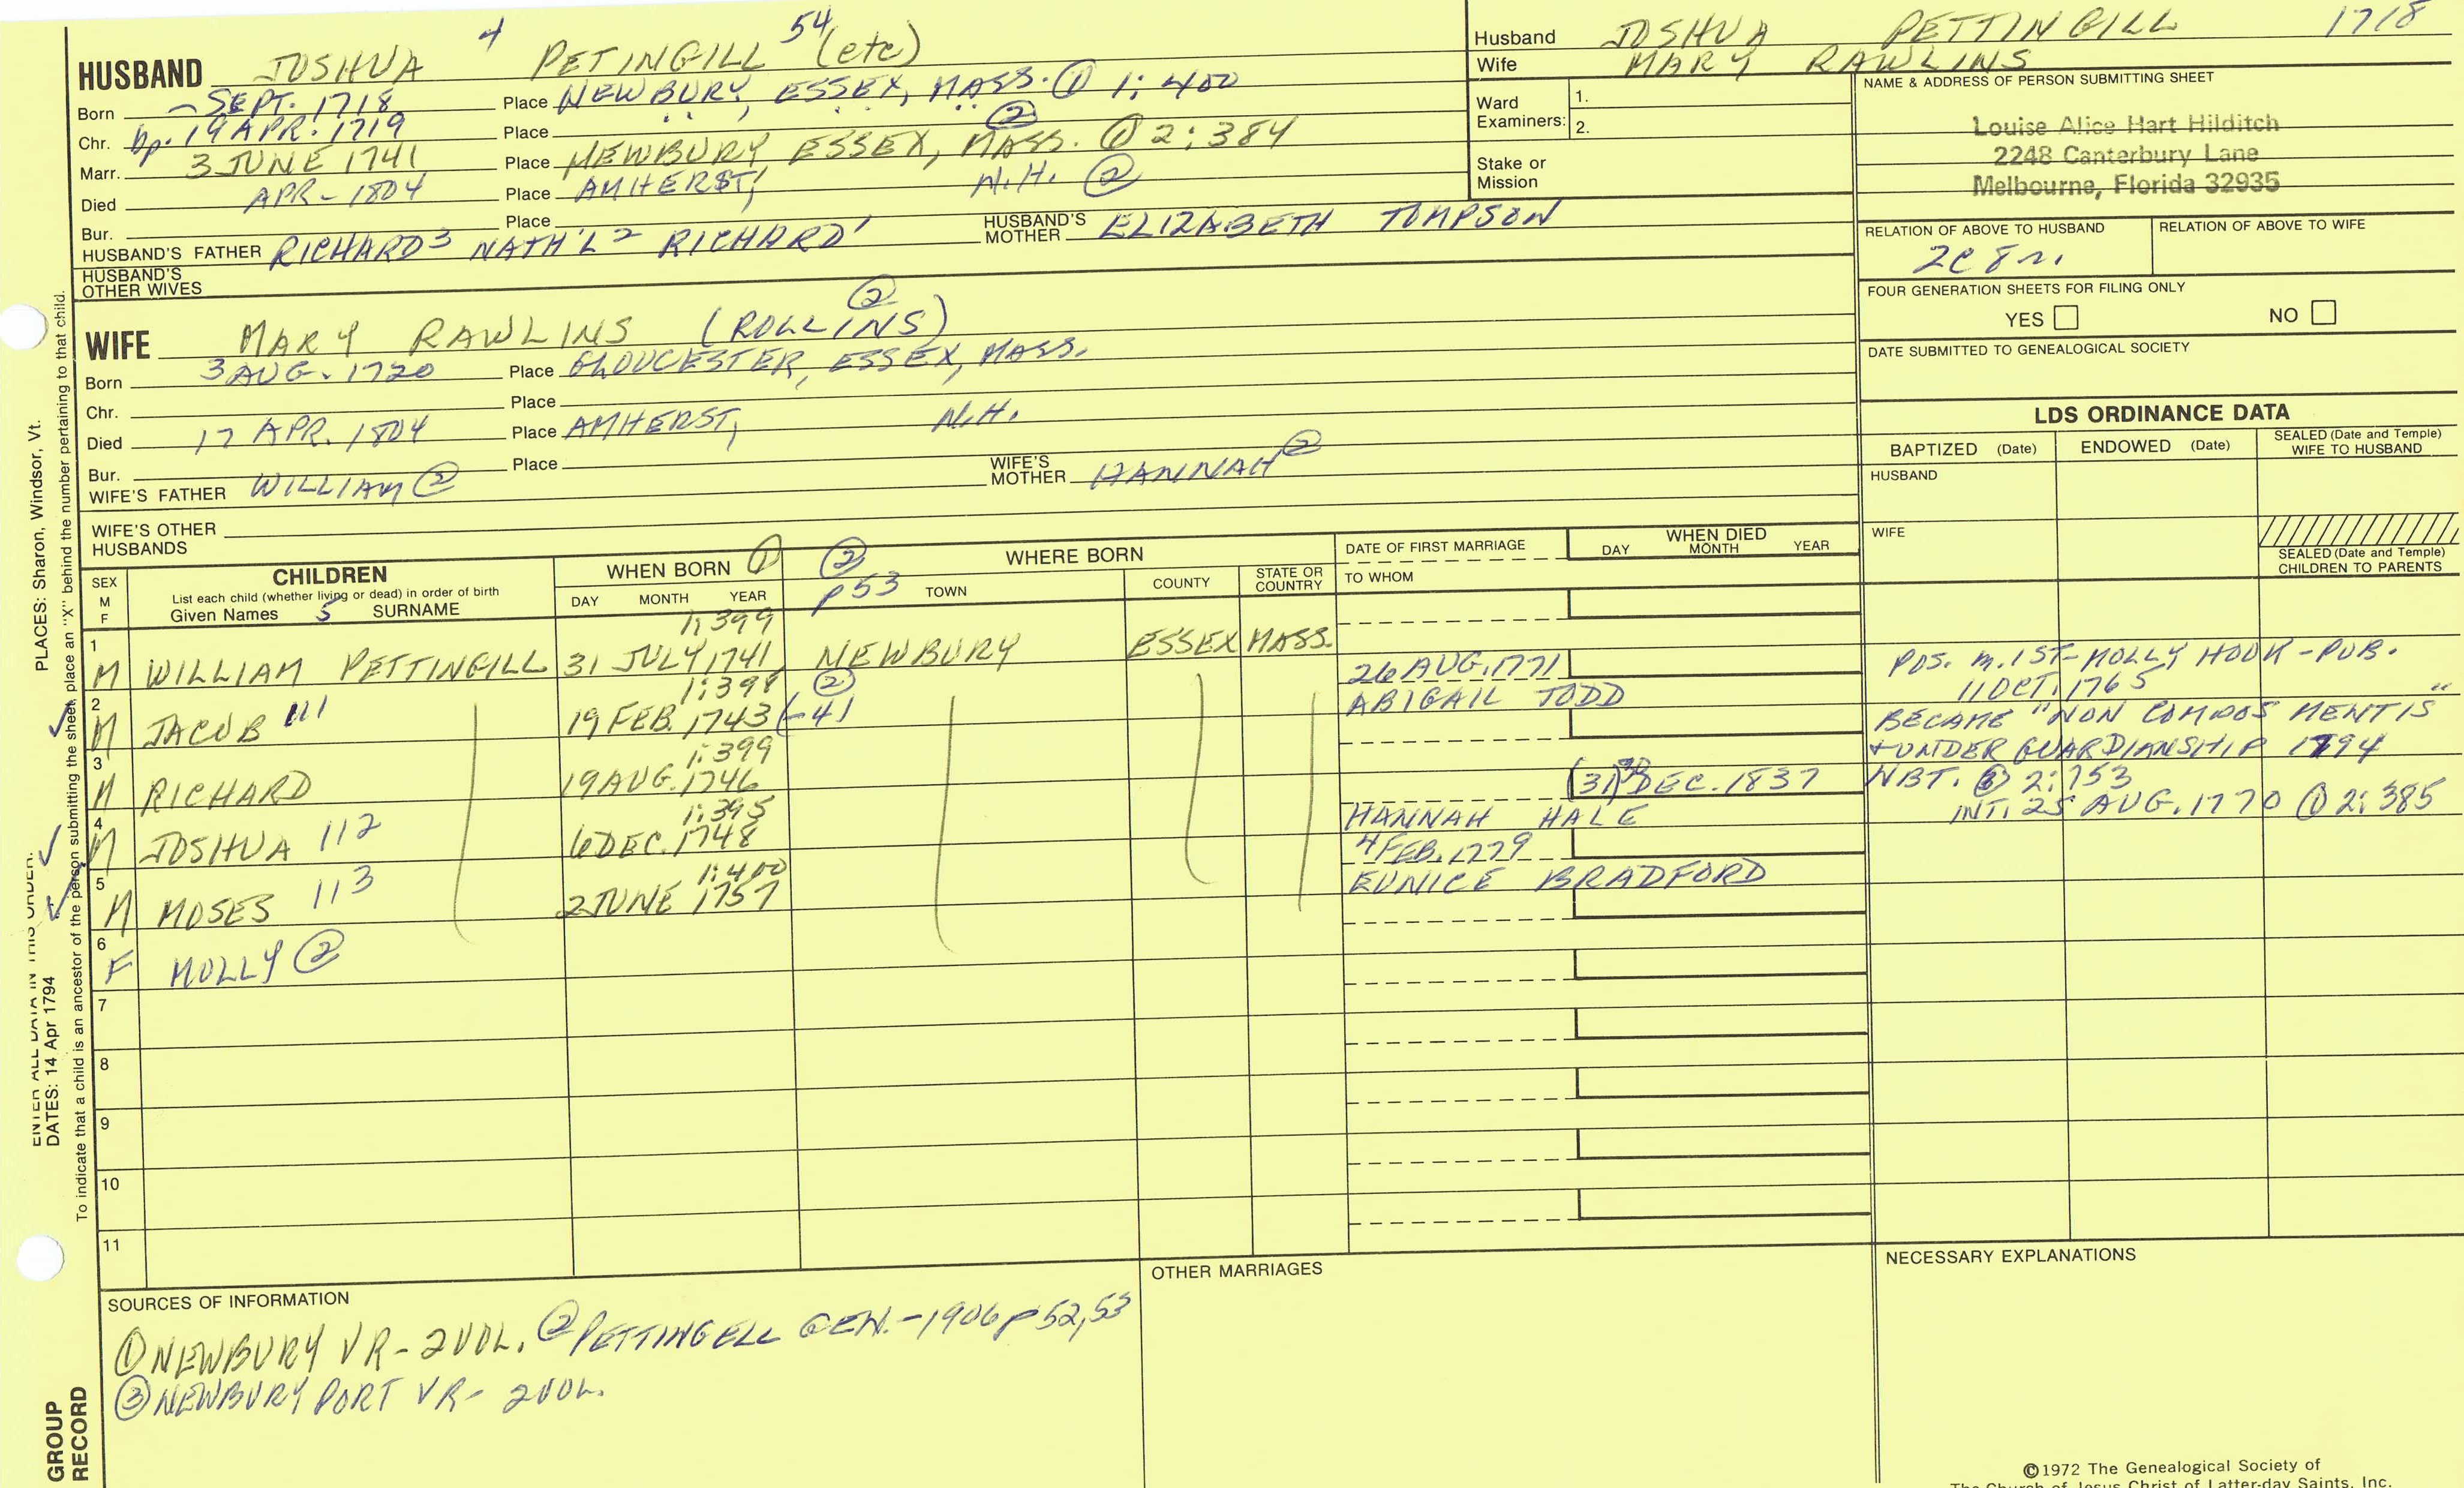 HUSBAND JOSHUA 4 PETINGILL 54 (etc)
Born ~ SEPT. 1718 Place NEWBURY, ESSEX, MASS. ① 1:400
Chr. bp. 19 APR. 1719 Place " , " " ②
Marr. 3 JUNE 1741 Place NEWBURY, ESSEX, MASS. ① 2:384
Died APR - 1804 Place AMHERST, N.H. ②
Bur. Place
HUSBAND'S FATHER RICHARD³ NATH'L² RICHARD¹ HUSBAND'S MOTHER ELIZABETH TOMPSON
HUSBAND'S OTHER WIVES
②
WIFE MARY RAWLINS (ROLLINS)
Born 3 AUG. 1720 Place GLOUCESTER, ESSEX, MASS.
Chr. Place
Died 17 APR. 1804 Place AMHERST, N.H.
Bur. Place
WIFE'S FATHER WILLIAM ② WIFE'S MOTHER HANNAH ②
WIFE'S OTHER HUSBANDS
Husband JOSHUA PETTINGILL 1718
Wife MARY RAWLINS
Ward Examiners: 1.
2.
Stake or Mission
NAME & ADDRESS OF PERSON SUBMITTING SHEET
Louise Alice Hart Hilditch
2248 Canterbury Lane
Melbourne, Florida 32935
RELATION OF ABOVE TO HUSBAND RELATION OF ABOVE TO WIFE
2C 8r.
FOUR GENERATION SHEETS FOR FILING ONLY
YES NO
DATE SUBMITTED TO GENEALOGICAL SOCIETY
LDS ORDINANCE DATA
BAPTIZED (Date) ENDOWED (Date) SEALED (Date and Temple) WIFE TO HUSBAND
HUSBAND
WIFE
SEALED (Date and Temple) CHILDREN TO PARENTS
SEX M F
CHILDREN
List each child (whether living or dead) in order of birth
Given Names 5 SURNAME
WHEN BORN ①
DAY MONTH YEAR
② p53
WHERE BORN
TOWN COUNTY STATE OR COUNTRY
DATE OF FIRST MARRIAGE
TO WHOM
WHEN DIED
DAY MONTH YEAR
1:399
1 M WILLIAM PETTINGILL 31 JULY 1741 NEWBURY ESSEX MASS.
POS. M. 1ST - MOLLY HOOK - PUB.
11 OCT. 1765
1:398 ② 26 AUG. 1771
2 M JACOB 111 19 FEB. 1743 (-4) ABIGAIL TODD
BECAME "NON COMPOS MENTIS"
+ UNDER GUARDIANSHIP 1794
1:399
3 M RICHARD 19 AUG. 1746
(31) 30 DEC. 1837
NBT. ③ 2:753
1:395
4 M JOSHUA 112 6 DEC. 1748 HANNAH HALE
INT. 25 AUG. 1770 ① 2:385
1:400 4 FEB. 1779
5 M MOSES 113 2 JUNE 1757 EUNICE BRADFORD
6 F MOLLY ②
7
8
9
10
11
SOURCES OF INFORMATION
① NEWBURY VR - 2 VOL. ② PETTINGELL GEN. - 1906 p 52, 53
③ NEWBURY PORT VR - 2 VOL.
OTHER MARRIAGES
NECESSARY EXPLANATIONS
©1972 The Genealogical Society of
The Church of Jesus Christ of Latter-day Saints, Inc.
ENTER ALL DATA IN THIS ORDER:
PLACES: Sharon, Windsor, Vt.
DATES: 14 Apr 1794
To indicate that a child is an ancestor of the person submitting the sheet, place an "X" behind the number pertaining to that child.
GROUP
RECORD